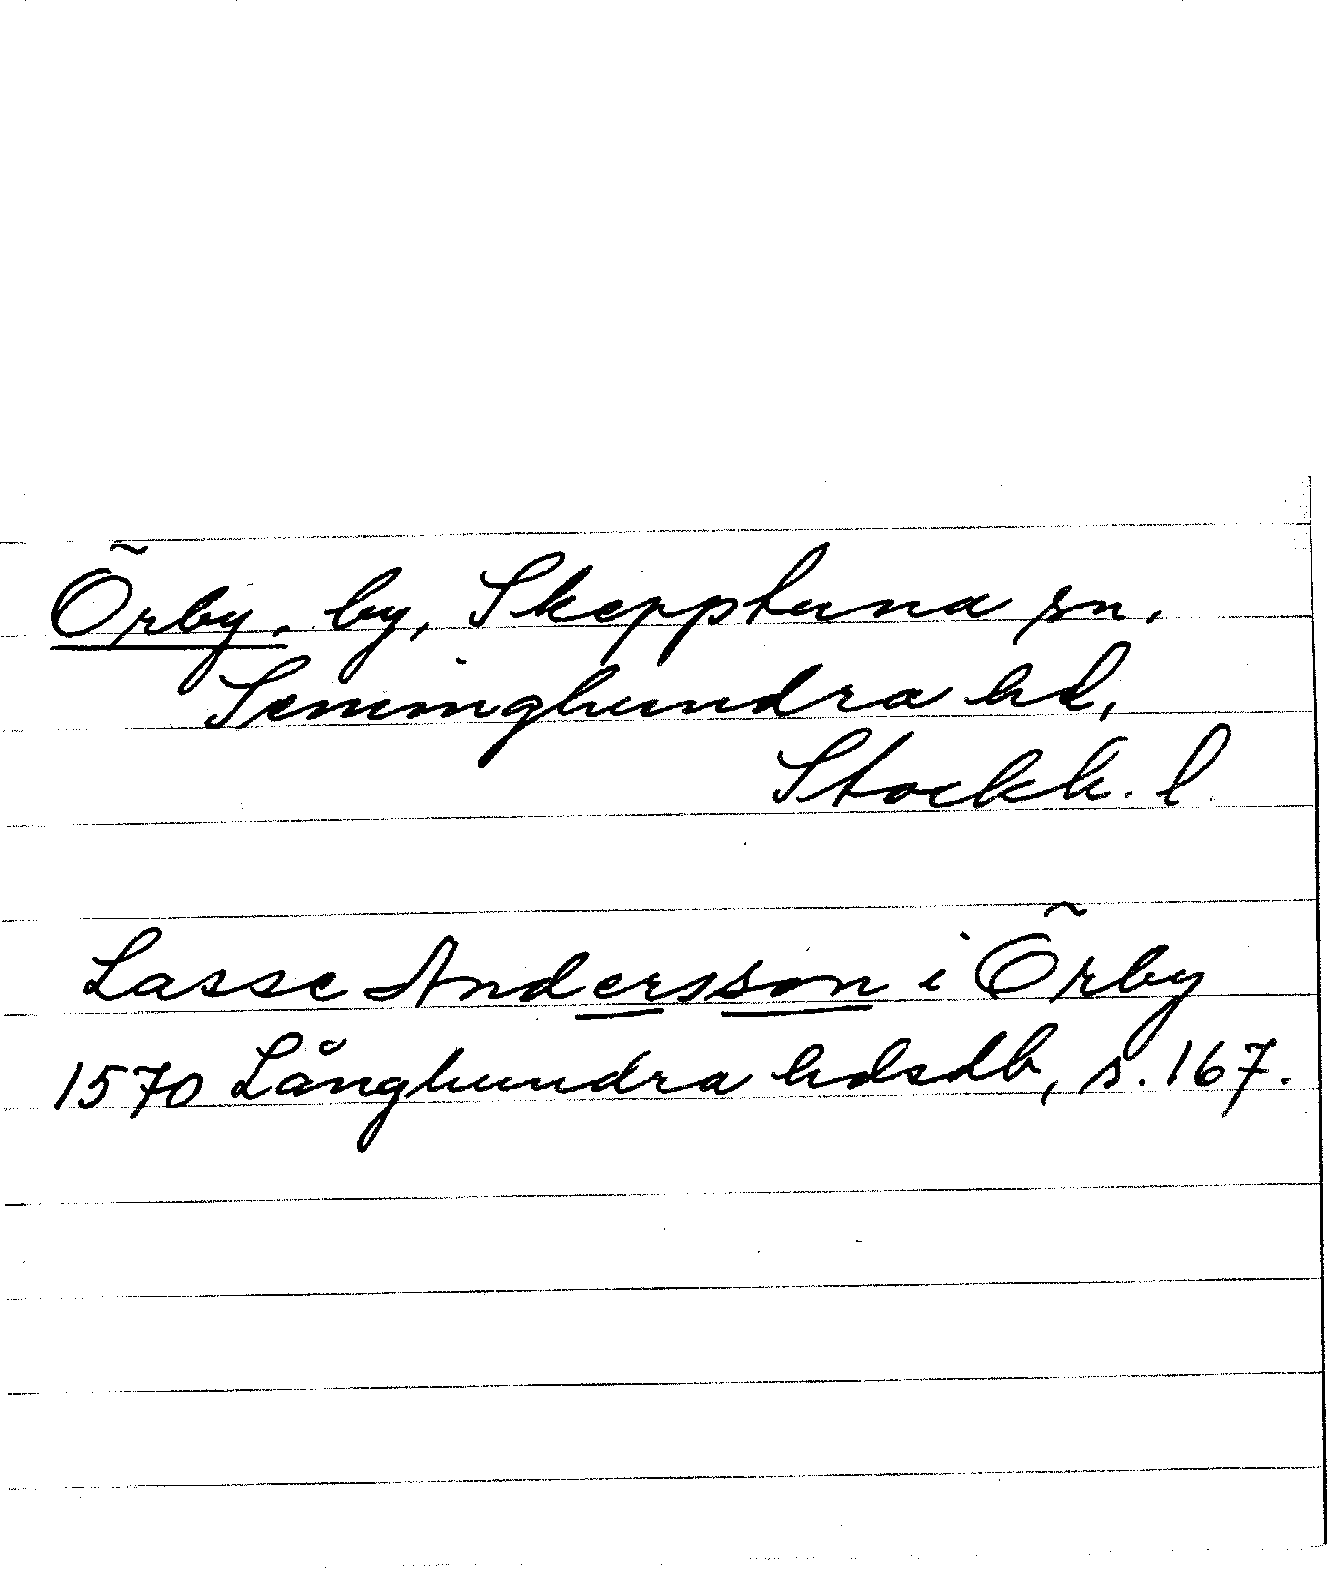 Örby, by, Skepptuna sn.
Seminghundra hd,
Stockh. l.
Lasse Andersson i Örby
1570 Långhundra hdsdb, s. 167.